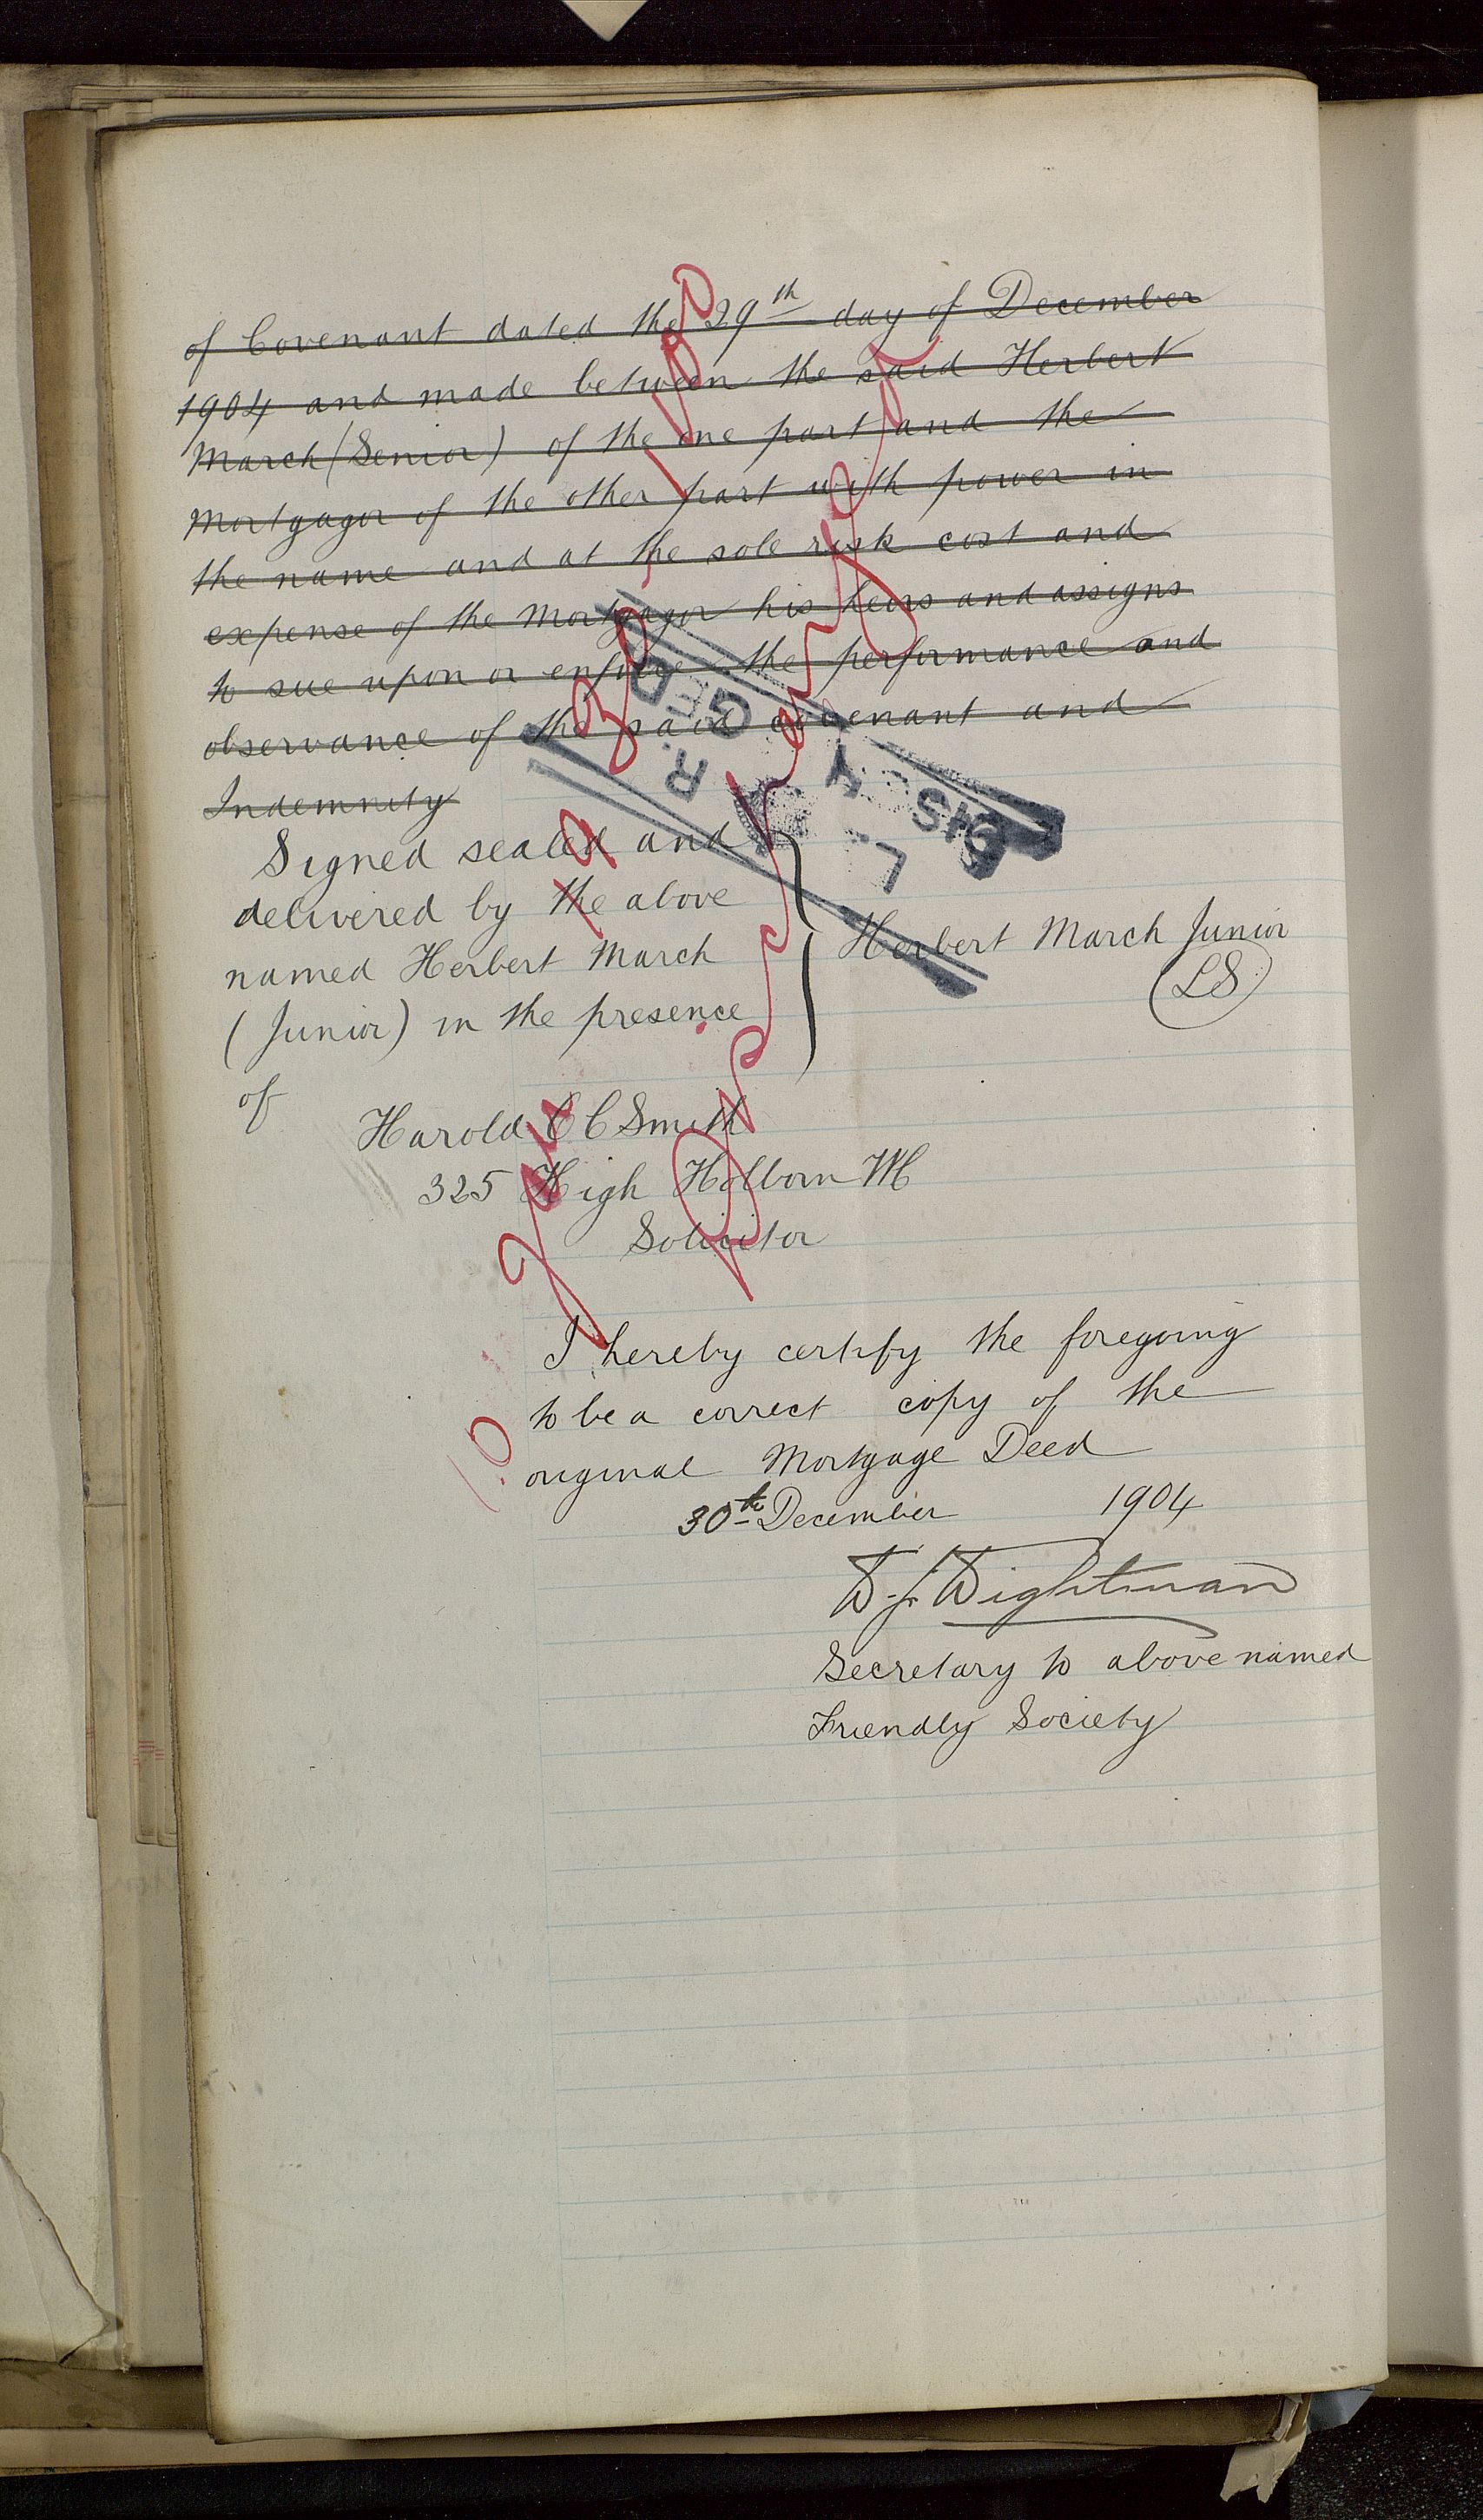 of Covenant dated the 29th day of December
1904 and made between the said Herbert
March (Senior) of the one part and the
Mortgagor of the other part with power in
the name and at the sole risk cost and
expense of the Mortgagor his heirs and assigns
to sue upon or enforce the performance and
observance of the said covenant and
Indemnity
Signed sealed and
delivered by the above
named Herbert March
(Junior) in the presence
of
Herbert March Junior
(LS)
Harold C C Smith
325 High Holborn WC
Solicitor
I hereby certify the foregoing
to be a correct copy of the
original Mortgage Deed
30th December 1904
W J Wightman
Secretary to above named
Friendly Society
Discharged